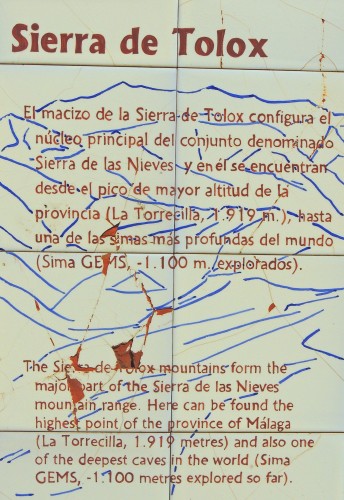 Sierra de Tolox
El macizo de la Sierra de Tolox configura el
núcleo principal del conjunto denominado
Sierra de las Nieves y en él se encuentran
desde el pico de mayor altitud de la
provincia (La Torrecilla, 1.919 m.), hasta
una de las simas más profundas del mundo
(Sima GEMS, -1.100 m. explorados).
The Sierra de Tolox mountains form the
major part of the Sierra de las Nieves
mountain range. Here can be found the
highest point of the province of Málaga
(La Torrecilla, 1.919 metres) and also one
of the deepest caves in the world (Sima
GEMS, -1.100 metres explored so far).